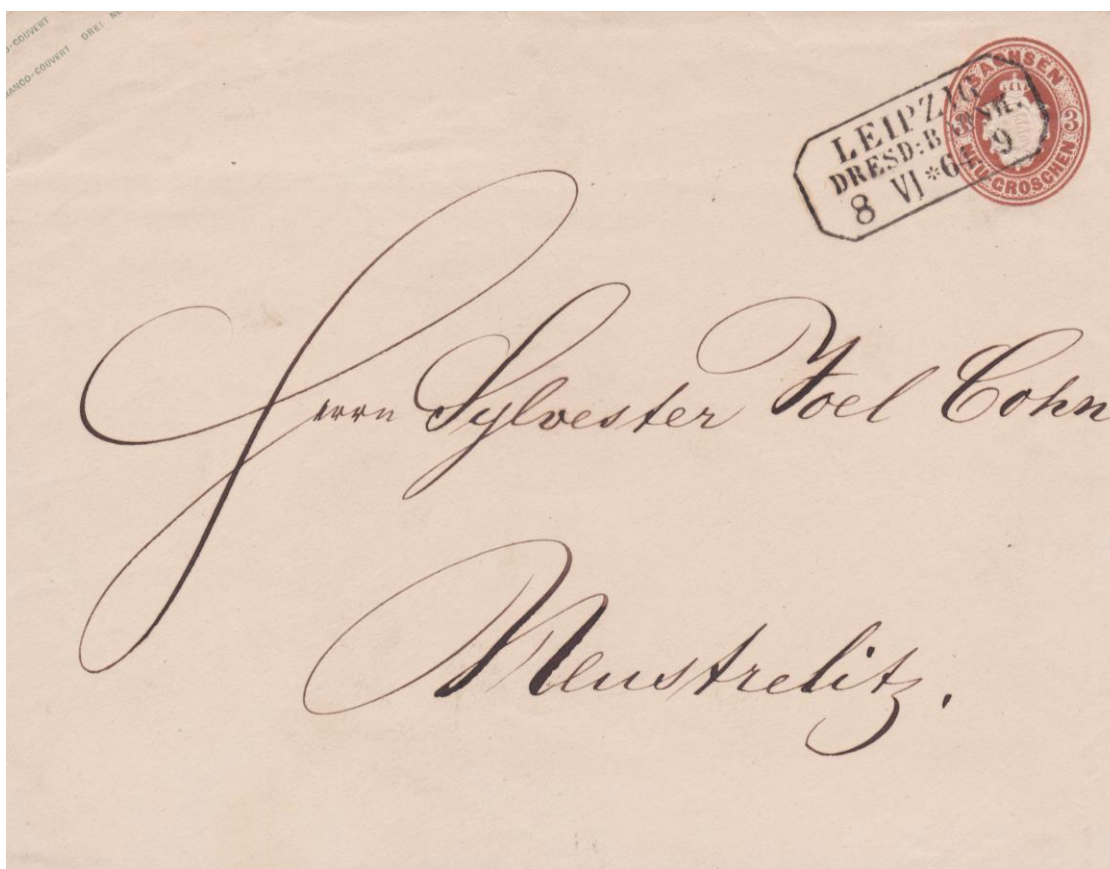 -COUVERT
FRANCO-COUVERT DREI
SACHSEN
3 3
NEU GROSCHEN
LEIPZIG
DRESD: BAHNH.
8 VI * 64 9
Herrn Sylvester Joel Cohn
Neustrelitz.